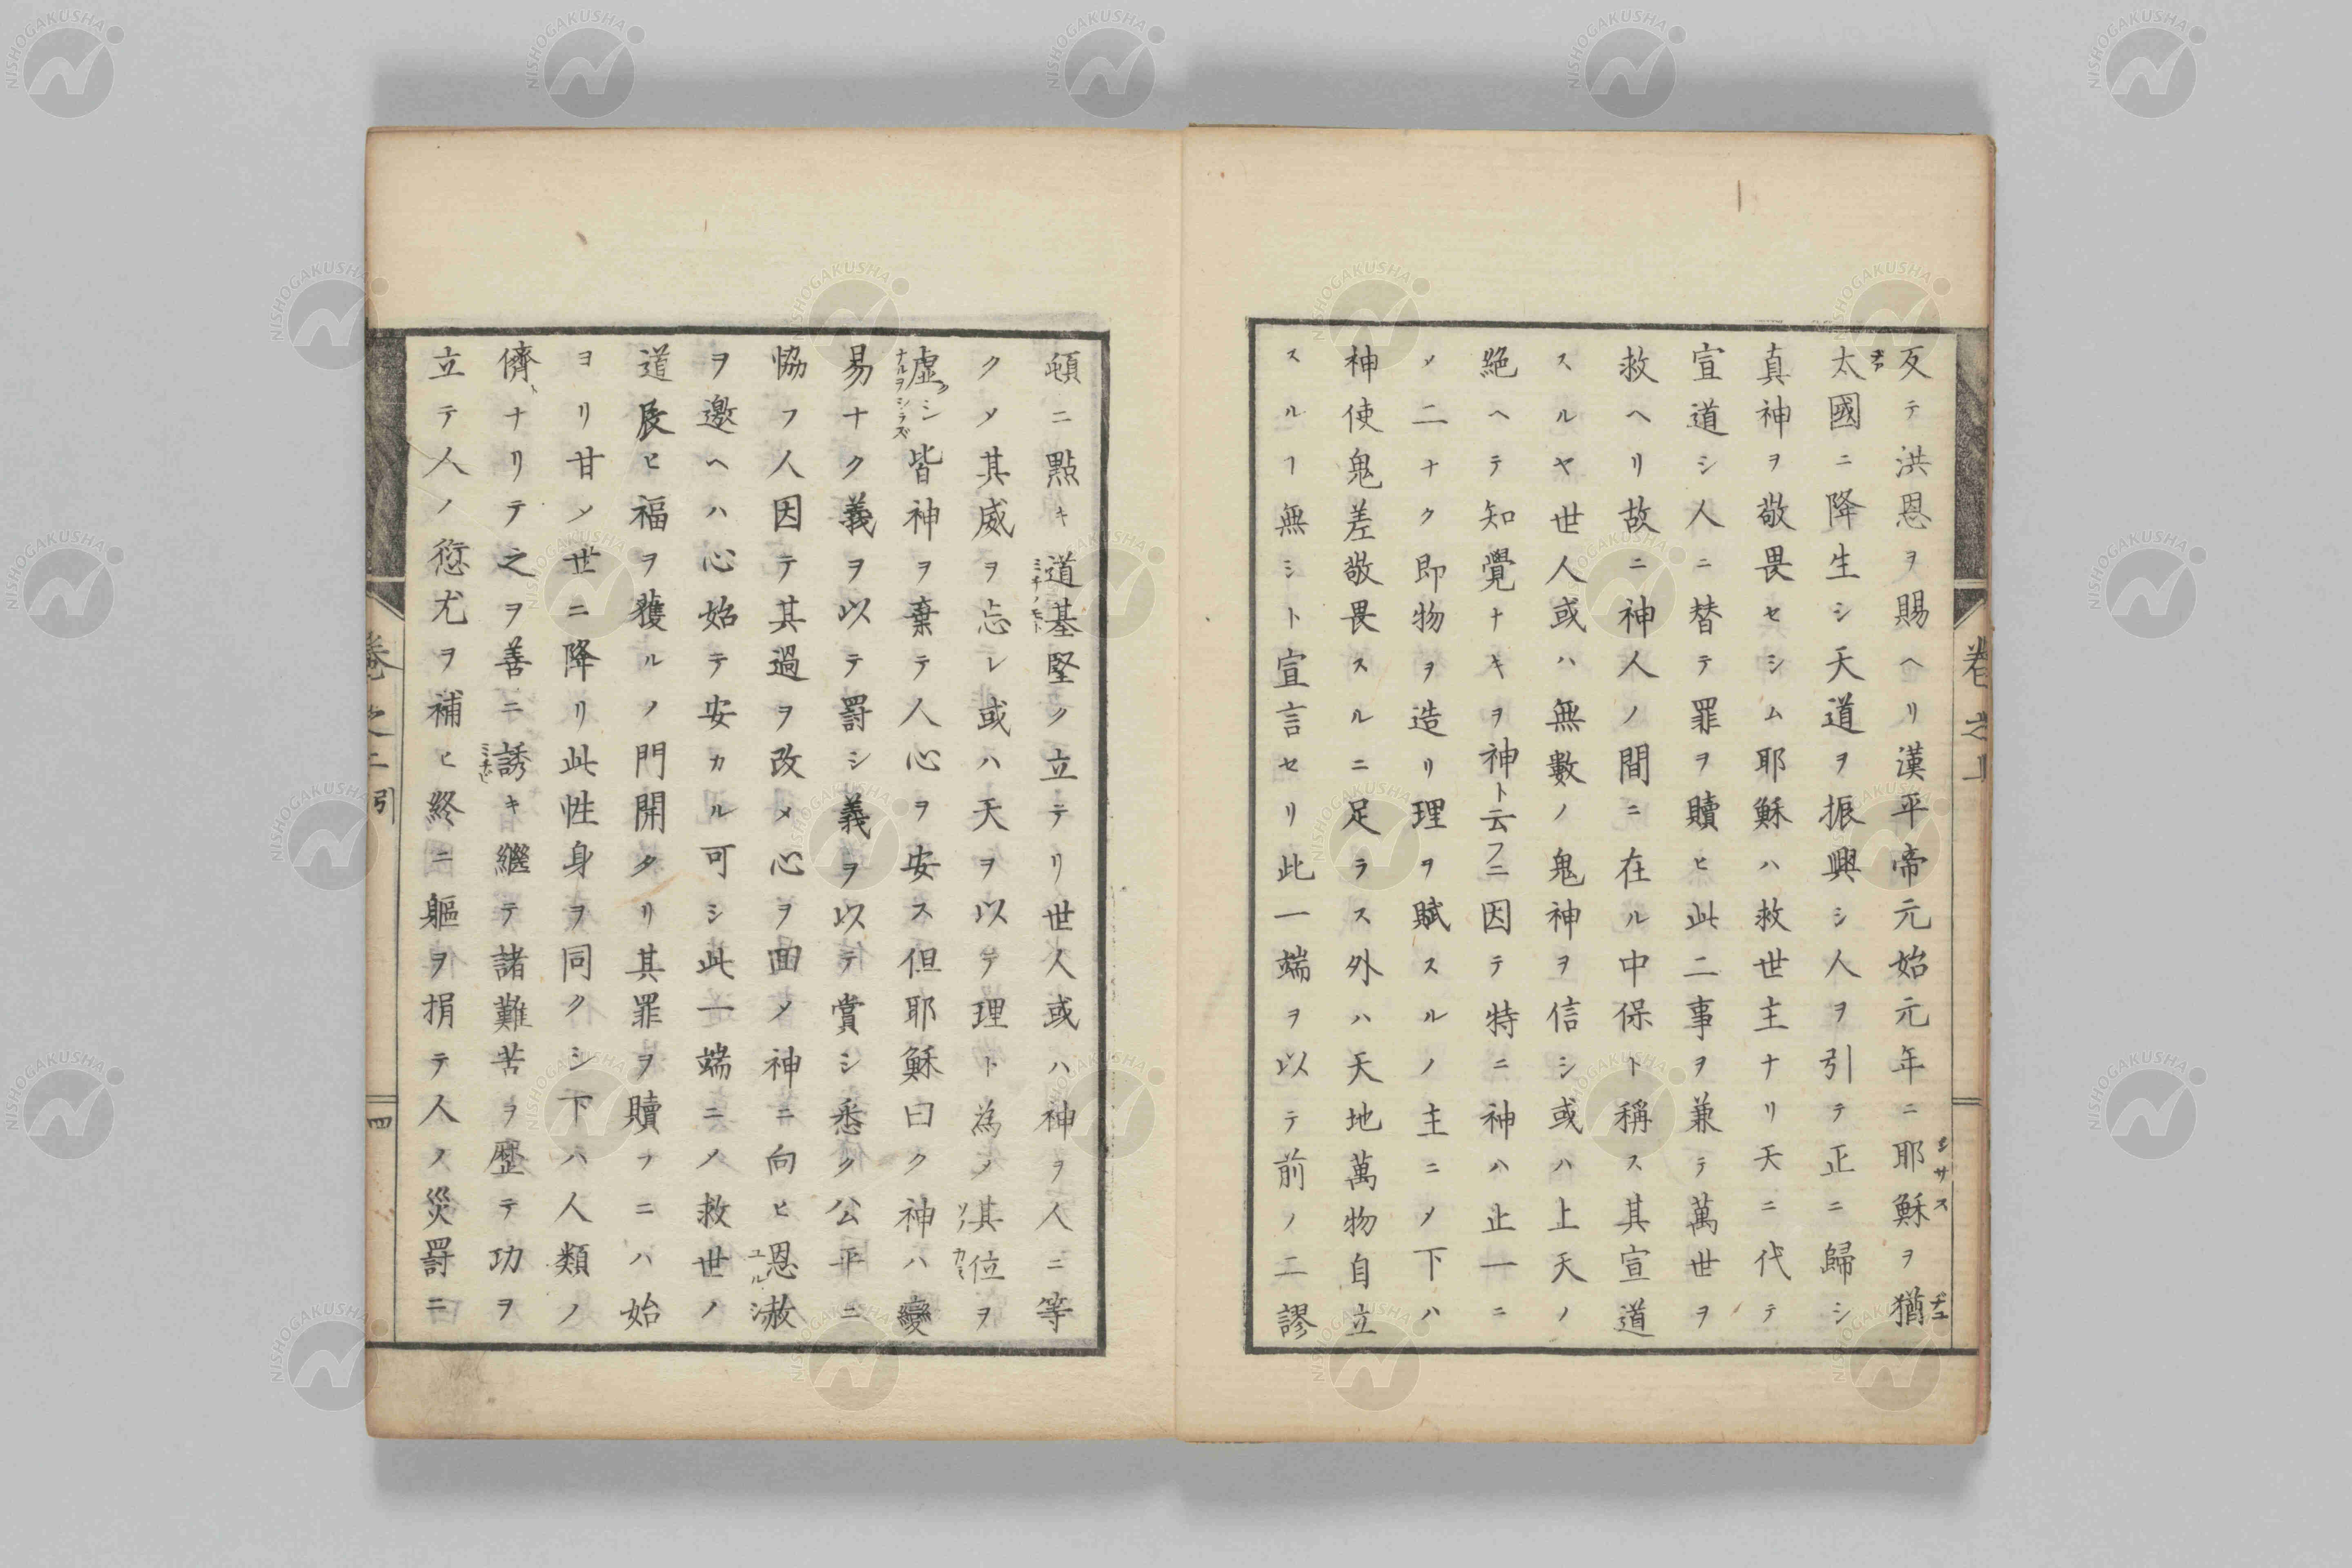 反テ洪恩ヲ賜ヘリ漢平帝元始元年ニ耶穌ヲ猶
太國ニ降生シ天道ヲ振興シ人ヲ引テ正ニ歸シ
真神ヲ敬畏セシム耶穌ハ救世主ナリ天ニ代テ
宣道シ人ニ替テ罪ヲ贖ヒ此二事ヲ兼テ萬世ヲ
救ヘリ故ニ神人ノ間ニ在ル中保ト稱ス其宣道
スルヤ世人或ハ無數ノ鬼神ヲ信シ或ハ上天ノ
絕ヘテ知覺ナキヲ神ト云フニ因テ特ニ神ハ止一ニ
メ二ナク即物ヲ造リ理ヲ賦スルノ主ニメ下ハ
神使鬼差敬畏スルニ足ラス外ハ天地萬物自立
スルヿ無シト宣言セリ此一端ヲ以テ前ノ二謬
頓ニ點キ道基堅ク立テリ世人或ハ神ヲ人ニ等
クメ其威ヲ忘レ或ハ天ヲ以テ理ト為メ其位ヲ
虛クシ皆神ヲ棄テ人心ヲ安ス但耶穌曰ク神ハ變
易ナク義ヲ以テ罰シ義ヲ以テ賞シ悉ク公平ニ
協フ人因テ其過ヲ改メ心ヲ面メ神ニ向ヒ恩赦
ヲ邀ヘハ心始テ安カル可シ此一端ニメ救世ノ
道辰ヒ福ヲ獲ルノ門開クタリ其罪ヲ贖フニハ始
ヨリ甘メ世ニ降リ此性身ヲ同クシ下ハ人類ノ
儕ナリテ之ヲ善ニ誘キ繼テ諸難苦ヲ歷テ功ヲ
立テ人ノ愆尤ヲ補ヒ終ニ軀ヲ捐テ人ノ災罰ニ
卷之二引
四
NISHOGAKUSHA